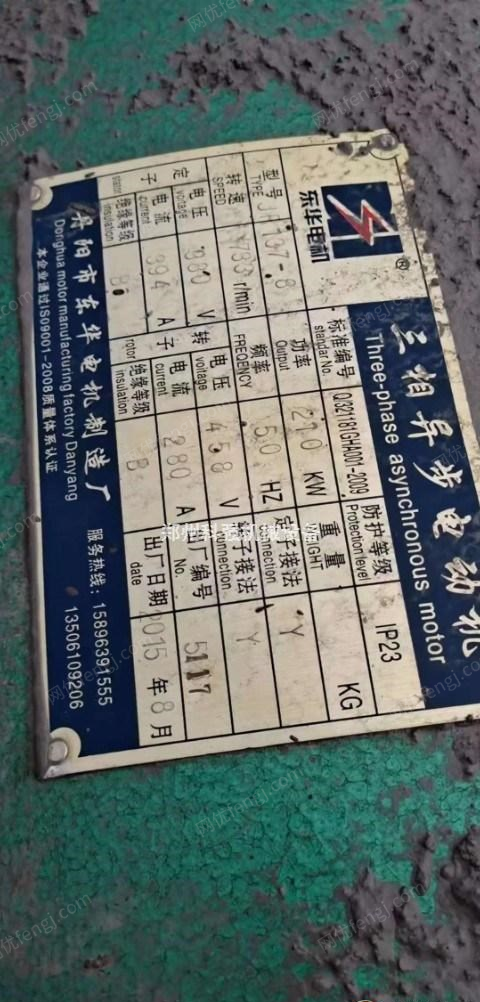 东华电机 ®
三相异步电动机
Three-phase asynchronous motor
型号 TYPE JR137-8
标准编号 standar No. Q/321181GHA001-2009
防护等级 Protection level IP23
转速 SPEED 733 r/min
功率 Output 210 KW
重量 KG
定子
电压 voltage 380 V
频率 FREQENCY 50 HZ
定子接法 Y
电流 current 394 A
转子
电压 voltage 458 V
转子接法 Y
stator
绝缘等级 insulation B
电流 current 280 A
出厂编号 No. 5117
rotor
绝缘等级 insulation B
出厂日期 date 2015 年 8 月
丹阳市东华电机制造厂
Donghua motor manufacturing factory Danyang
本企业通过ISO9001-2008质量体系认证
服务热线: 15896391555
13506109206
郑州科强机械设备